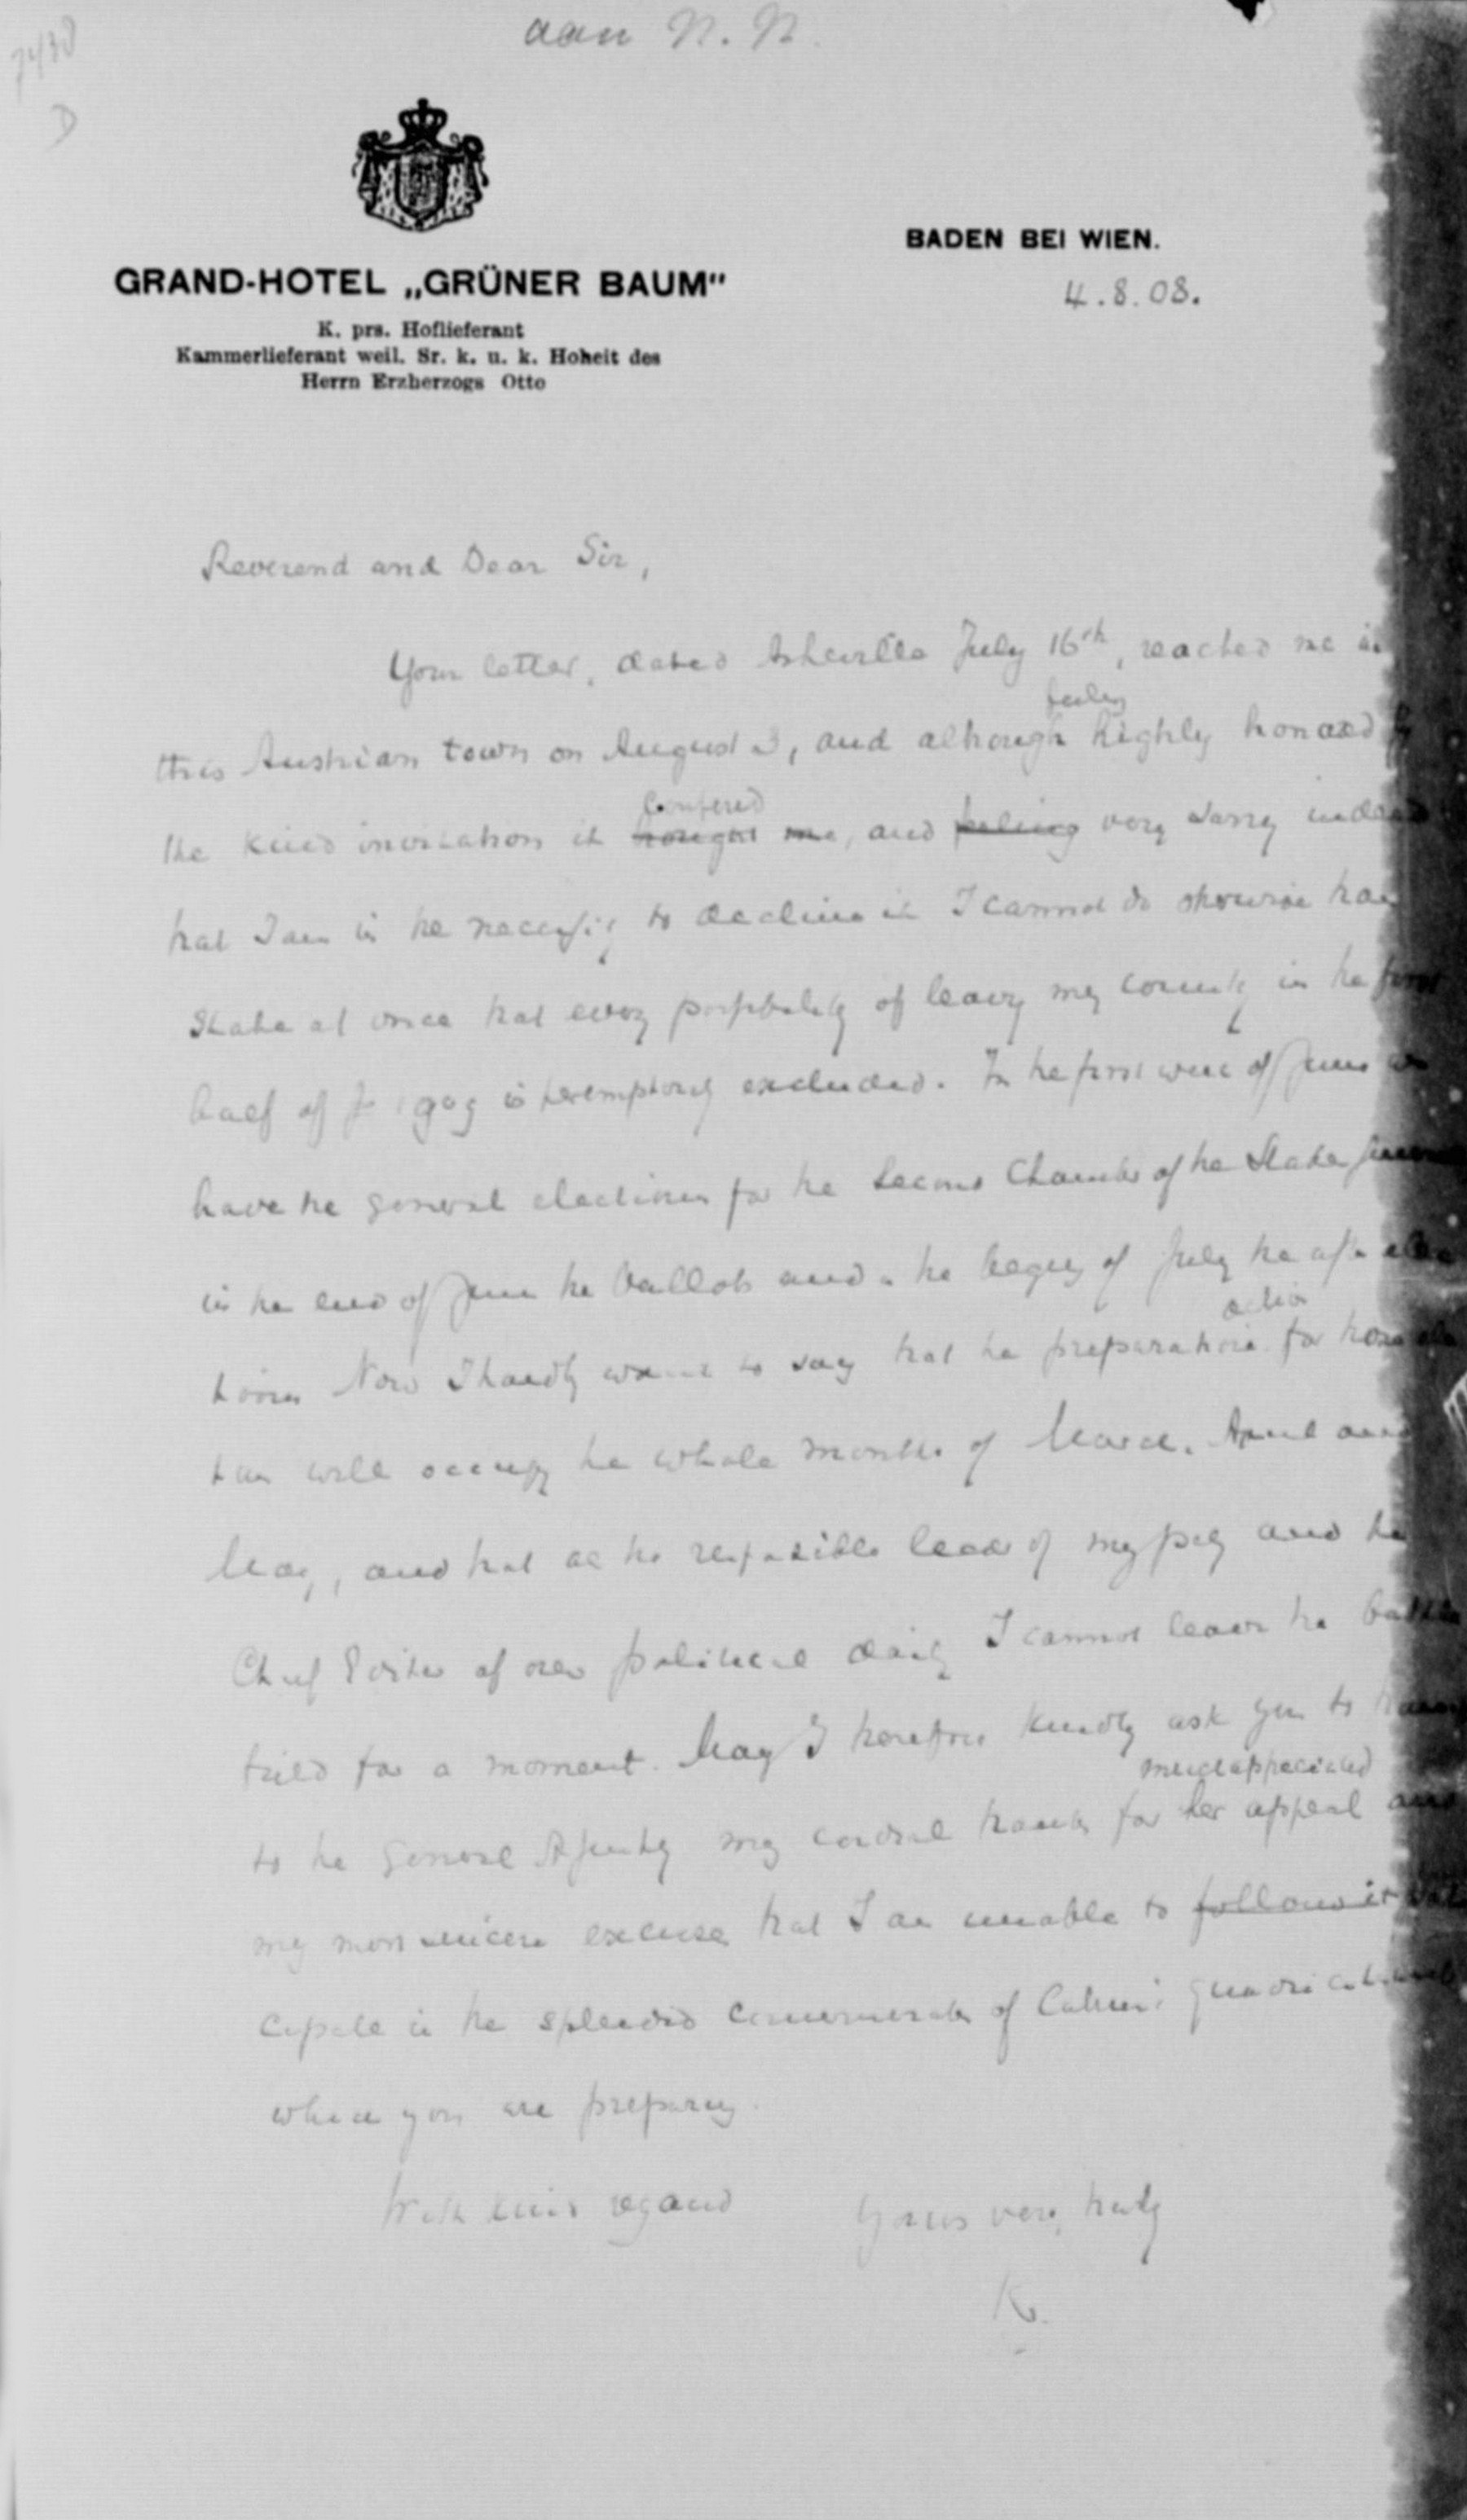 7430
D
aan N. N.
GRAND-HOTEL „GRÜNER BAUM"
K. prs. Hoflieferant
Kammerlieferant weil. Sr. k. u. k. Hoheit des
Herrn Erzherzogs Otto
BADEN BEI WIEN.
4.8.08.
Reverend and Dear Sir,
Your letter, dated Asheville July 16th, reached me in
feeling
this Austrian town on August 3, and although highly honored
confered
the kind invitation it brought me, and feeling very sorry indeed
hat I am in he necessity to decline it I cannot do otherwise han
State at once hat every possibility of leaving my country in he first
half of 1909 is peremptorily excluded. In he first week of June we
have he general elections for he Second Chamber of he States
in he end of June he ballots and he begin of July he after
tions Now I hardly want to say hat he preparation for
will occupy he whole months of March, April and
May, and hat as he responsible leader of my party and he
Chief Editor of our political daily I cannot leave he battle
field for a moment. May I herefore kindly ask you to
much appreciated
to he General Assembly my cordial hanks for her appeal and
my most sincere excuse hat I am unable to follow it
cipate in he splendid commemoration of Calvin's
which you are preparing.
With kind regard Yours very truly
K.